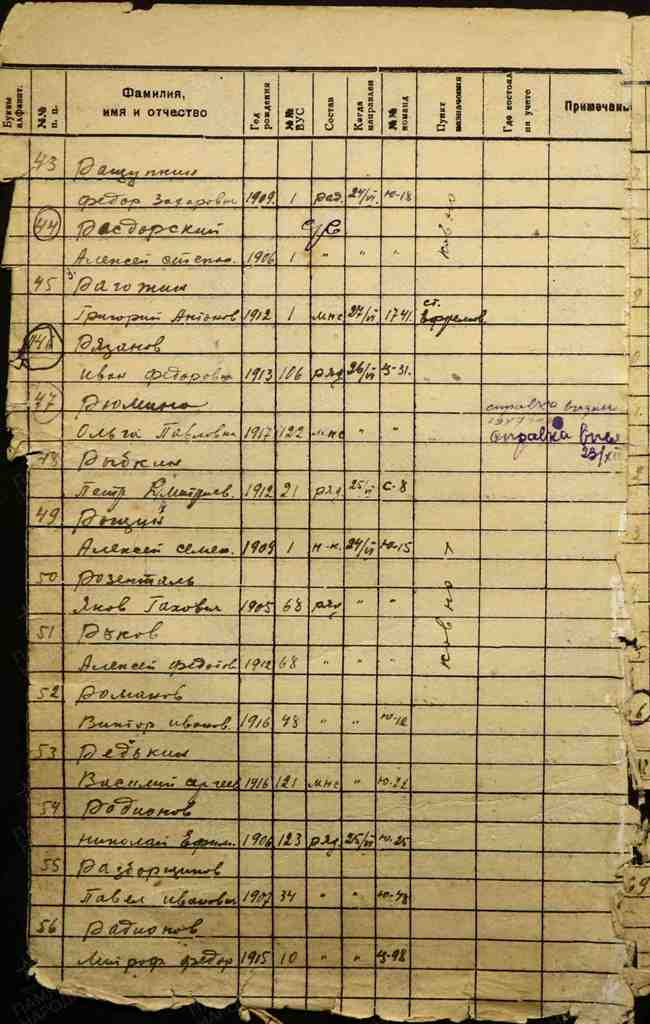 Буквы алфавит. №№ п. п. Фамилия, имя и отчество Год рождения №№ ВУС Состав Когда направлен №№ команд Пункт назначения Где состоял на учете Примечан
43 Ращупкин
Федор Захарович 1909 1 ряд. 24/VI Ю-18
44 Расдорский
Алексей Степан. 1906 1 " " "
45 Рагожин
Григорий Антонов 1912 1 мнс 27/VI 1741. ст. Ефремов
46 Рязанов
Иван Федорович 1913 106 ряд 26/VI 31.
47 Рюмина справка
Ольга Павловна 1917 122 мнс " " справка
48 Рыбкин 23/XI
Петр Дмитриев. 1912 21 ряд 25/VI С-8
49
Алексей Семен. 1909 1 н-к. 24/VI Ю-15
50 Розенталь
Яков 1905 68 ряд " "
51 Руков
Алексей Федотов 1912 68 " " "
52 Романов
Виктор Иванов. 1916 48 " "
53 Редькин
Василий Сергеев 1916 121 мнс "
54 Родионов
Николай Ефим. 1906 123 ряд. 25/VI Ю-25
55 Разборщиков
Павел Иванович 1907 34 " " Ю-48
56 Радионов
Митроф. Федор 1915 10 " " 98